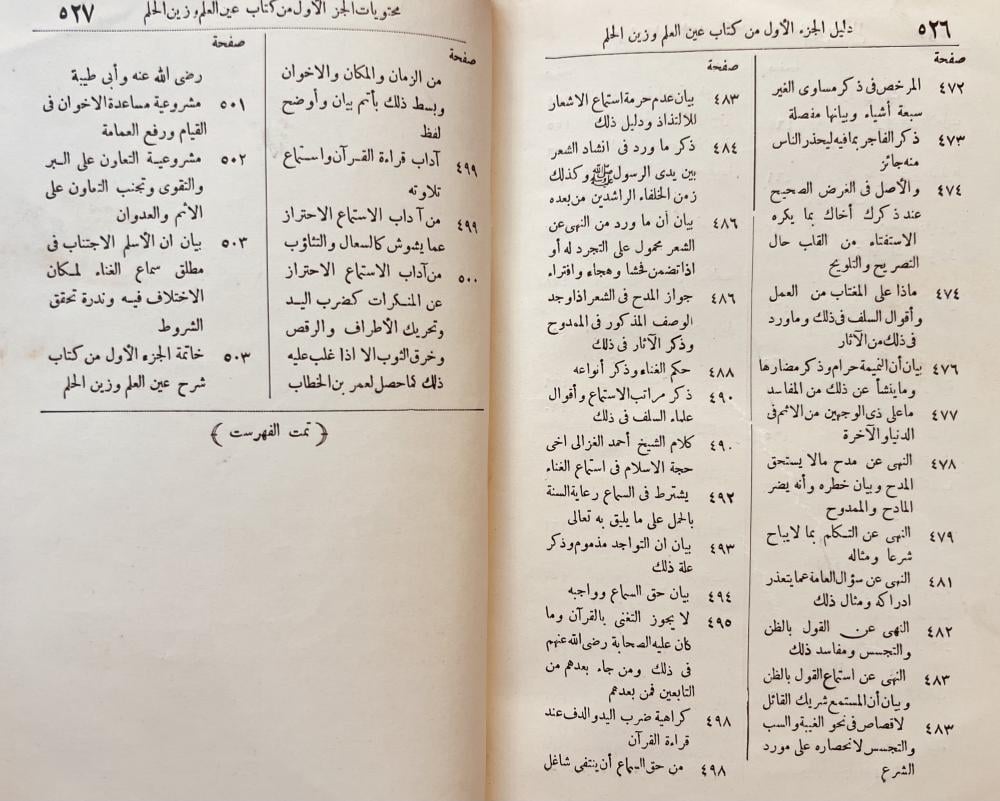 ٥٢٦ دليل الجزء الأول من كتاب عين العلم وزين الحلم
صفحة
٤٧٢ المرخص فى ذكر مساوى الغير
سبعة أشياء وبيانها مفصلة
٤٧٣ ذكر الفاجر بمافيه ليحذر الناس
منه جائز
٤٧٤ والأصل فى الغرض الصحيح
عند ذكرك أخاك بما يكره
الاستفتاء من القلب حال
التصريح والتلويح
٤٧٤ ماذا على المغتاب من العمل
وأقوال السلف فى ذلك وماورد
فى ذلك من الآثار
٤٧٦ بيان أن النميمة حرام وذكر مضارها
وماينشأ عن ذلك من المفاسد
٤٧٧ ماعلى ذى الوجهين من الاثم فى
الدنيا والآخرة
٤٧٨ النهى عن مدح مالا يستحق
المدح وبيان خطره وأنه يضر
المادح والممدوح
٤٧٩ النهى عن التكلم بما لايباح
شرعا ومثاله
٤٨١ النهى عن سؤال العامة عما يتعذر
ادراكه ومثال ذلك
٤٨٢ النهى عن القول بالظن
والتجسس ومفاسد ذلك
٤٨٣ النهى عن استماع القول بالظن
وبيان أن المستمع شريك القائل
٤٨٣ لاقصاص فى نحو الغيبة والسب
والتجسس لانحصاره على مورد
الشرع
صفحة
٤٨٣ بيان عدم حرمة استماع الاشعار
للالتذاذ ودليل ذلك
٤٨٤ ذكر ما ورد فى انشاد الشعر
بين يدى الرسول ﷺ وكذلك
زمن الخلفاء الراشدين من بعده
٤٨٦ بيان أن ما ورد من النهى عن
الشعر محمول على التجرد له أو
اذا تضمن فحشا وهجاء وافتراء
٤٨٦ جواز المدح فى الشعر اذا وجد
الوصف المذكور فى الممدوح
وذكر الآثار فى ذلك
٤٨٨ حكم الغناء وذكر أنواعه
٤٩٠ ذكر مراتب الاستماع وأقوال
علماء السلف فى ذلك
٤٩٠ كلام الشيخ أحمد الغزالى اخى
حجة الاسلام فى استماع الغناء
٤٩٢ يشترط فى السماع رعاية السنة
بالحمل على ما يليق به تعالى
٤٩٣ بيان ان التواجد مذموم وذكر
علة ذلك
٤٩٤ بيان حق السماع وواجبه
٤٩٥ لا يجوز التغنى بالقرآن وما
كان عليه الصحابة رضى الله عنهم
فى ذلك ومن جاء بعدهم من
التابعين فمن بعدهم
٤٩٨ كراهية ضرب اليد والدف عند
قراءة القرآن
٤٩٨ من حق السماع أن ينتفى شاغل
محتويات الجزء الأول من كتاب عين العلم وزين الحلم ٥٢٧
صفحة
من الزمان والمكان والاخوان
وبسط ذلك بأتم بيان وأوضح
لفظ
٤٩٩ آداب قراءة القرآن واستماع
تلاوته
٤٩٩ من آداب الاستماع الاحتراز
عما يشوش كالسعال والتثاؤب
٥٠٠ من آداب الاستماع الاحتراز
عن المنكرات كضرب اليد
وتحريك الأطراف والرقص
وخرق الثوب الا اذا غلب عليه
ذلك كما حصل لعمر بن الخطاب
صفحة
رضى الله عنه وأبى طيبة
٥٠١ مشروعية مساعدة الاخوان فى
القيام ورفع العمامة
٥٠٢ مشروعية التعاون على البر
والتقوى وتجنب التعاون على
الاثم والعدوان
٥٠٣ بيان ان الأسلم الاجتناب فى
مطلق سماع الغناء لمكان
الاختلاف فيه وندرة تحقق
الشروط
٥٠٣ خاتمة الجزء الأول من كتاب
شرح عين العلم وزين الحلم
﴿ تمت الفهرست ﴾